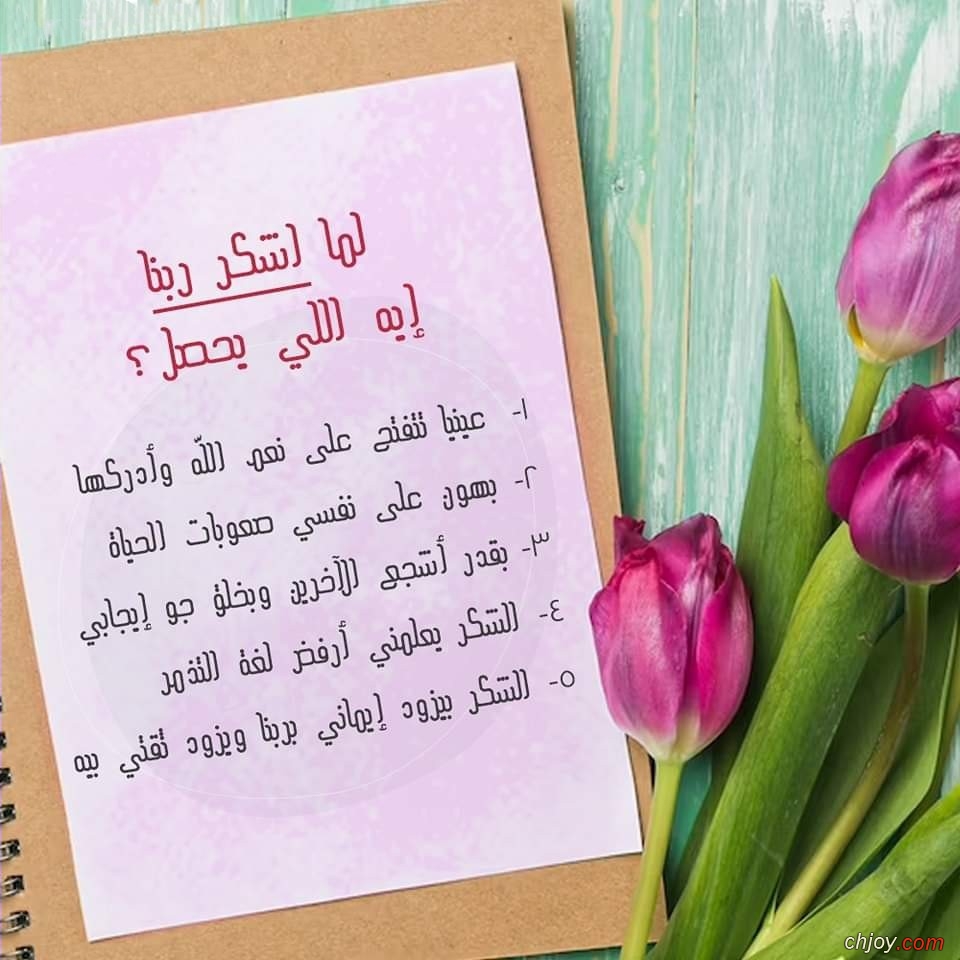 لما اشكر ربنا
إيه اللي يحصل؟
١- عينيا تتفتح على نعم الله وأدركها
٢- بهون على نفسي صعوبات الحياة
٣- بقدر أشجع الآخرين وبخلق جو إيجابي
٤- الشكر يعلمني أرفض لغة التذمر
٥- الشكر بيزود إيماني بربنا ويزود ثقتي بيه
chjoy.com